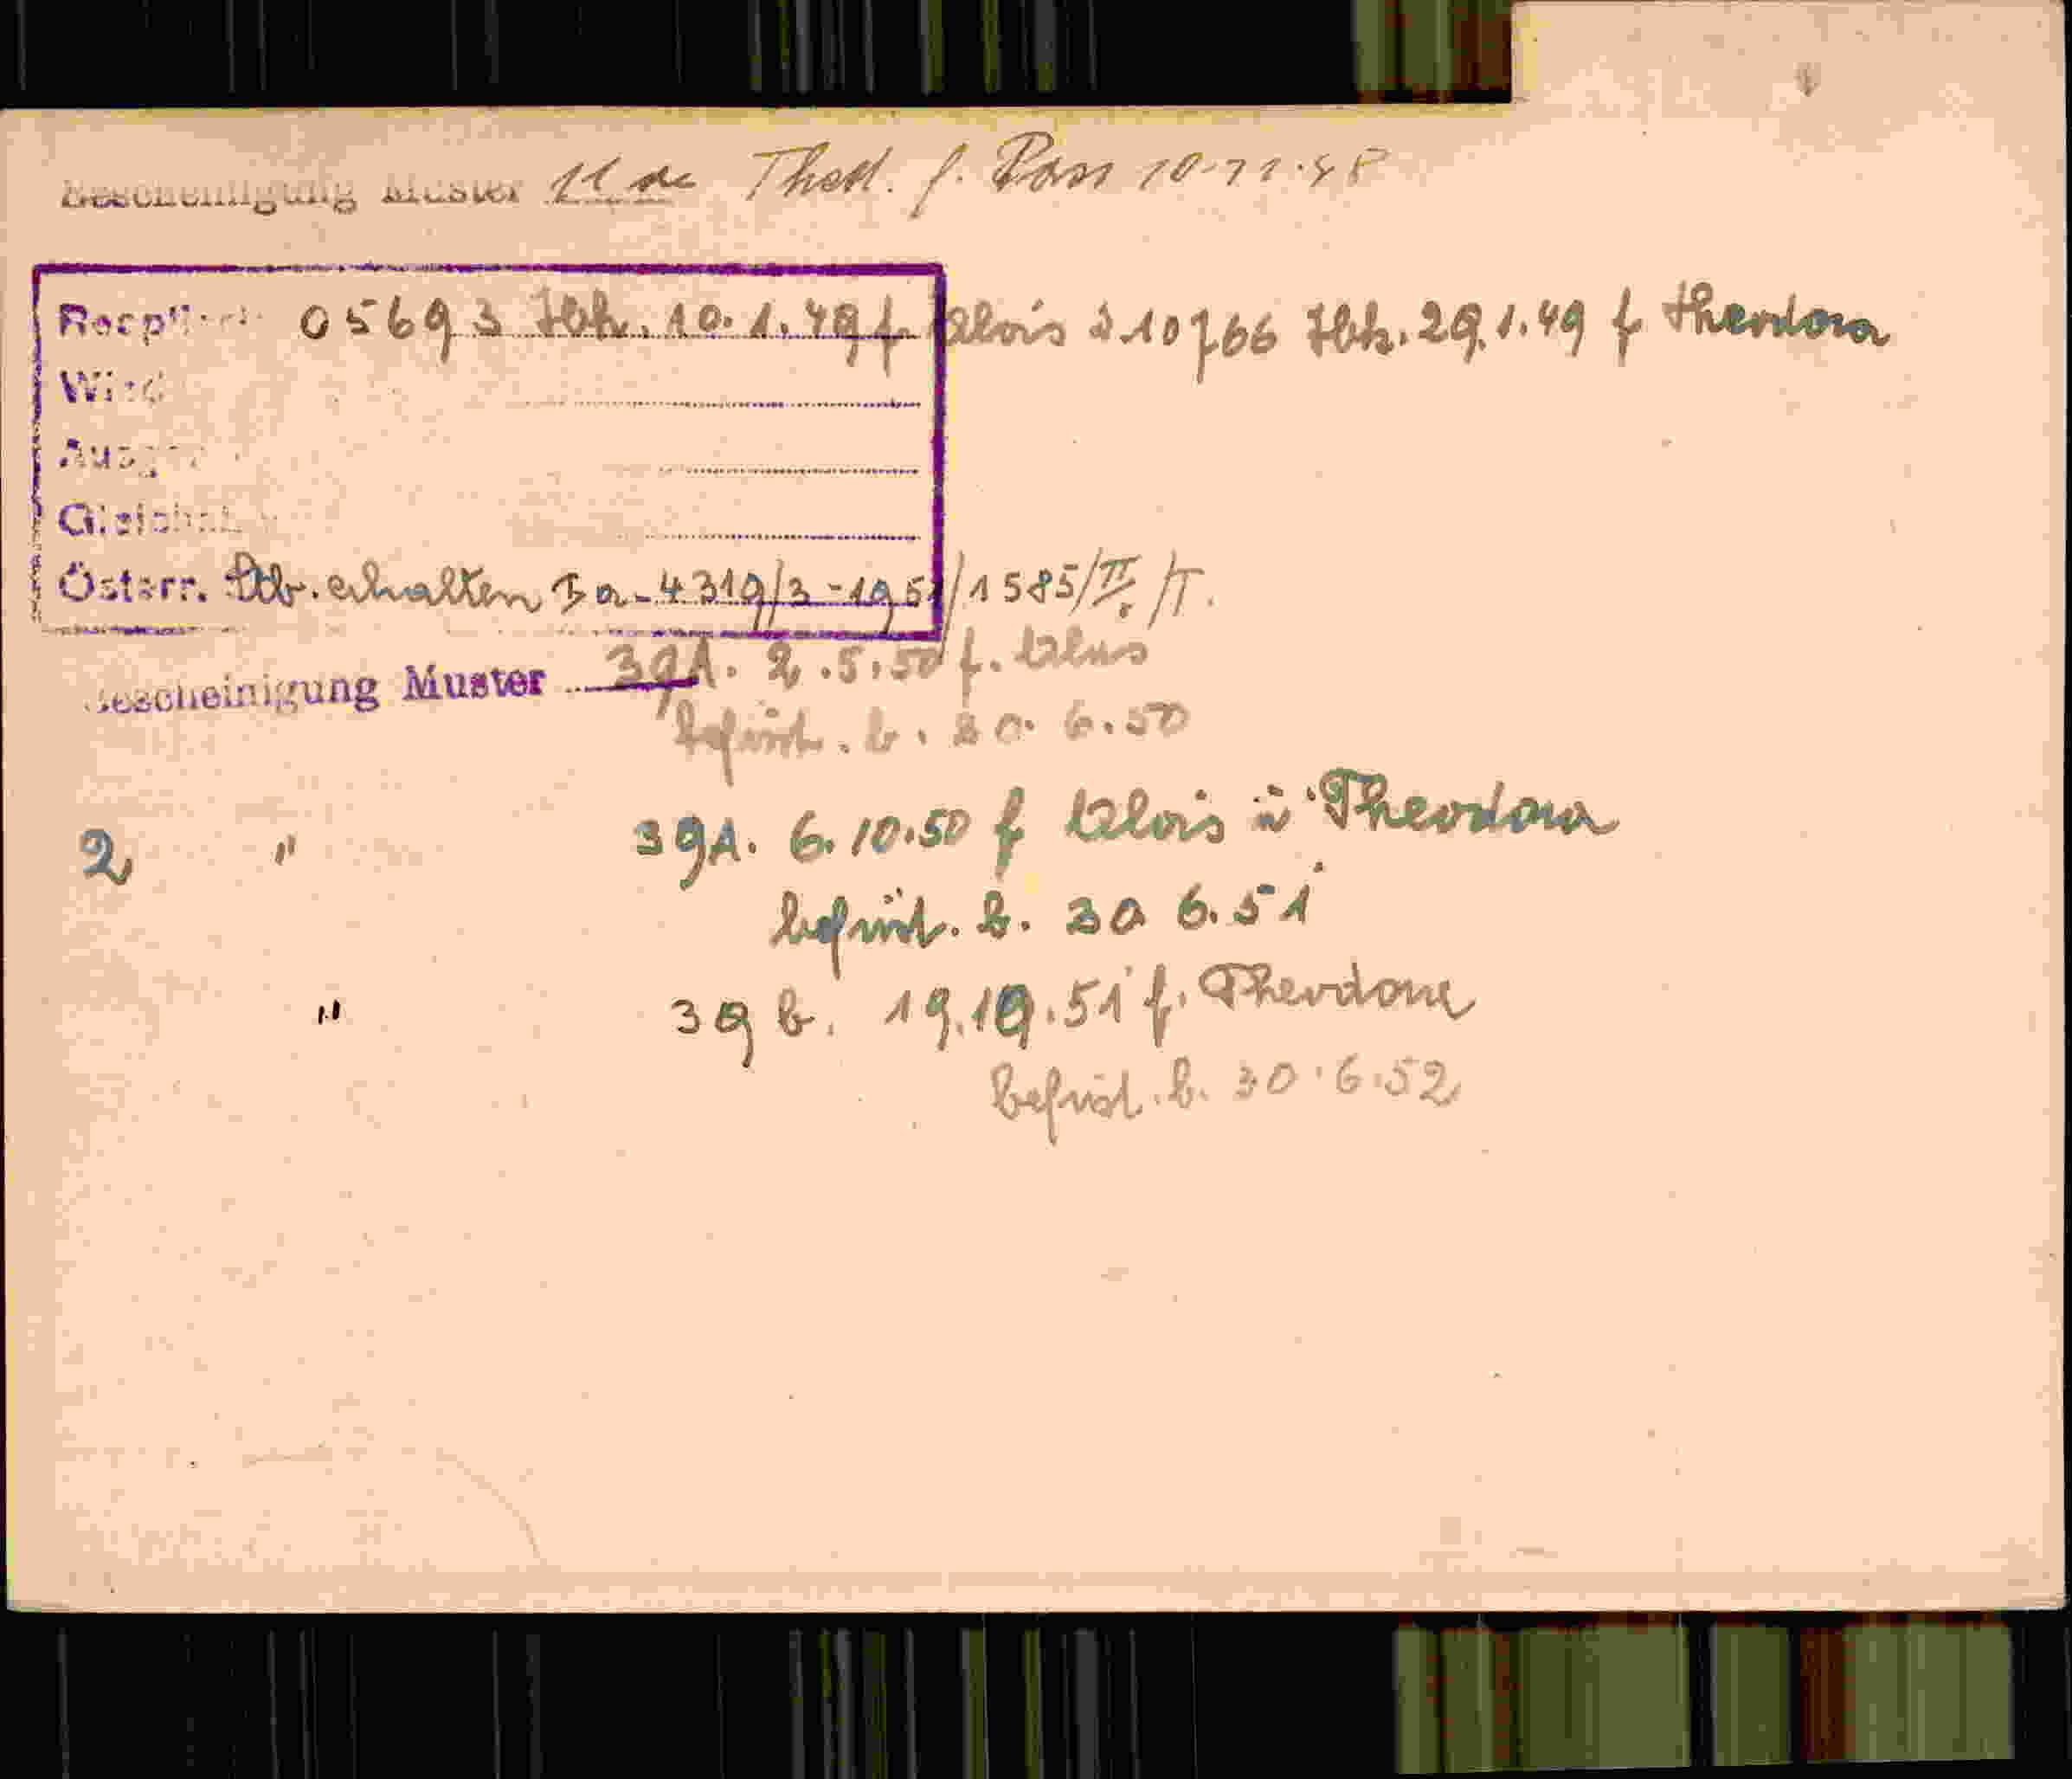 Bescheinigung Muster 11 de Thed. f. Pass 10.11.48
05693 Hbk. 10.1.49 f. Alois u. 10766 Hbk. 29.1.49 f Theodora
Wird
Österr. Stb. erhalten I a - 4319/3 - 1951/1585/II./T.
Bescheinigung Muster 39A. 2.5.50 f. Alois
befrist. b. 30.6.50
2 " 39A. 6.10.50 f Alois u Theodora
befrist. b. 30 6.51
" 39 b. 19.10.51 f. Theodora
befrist. b. 30.6.52